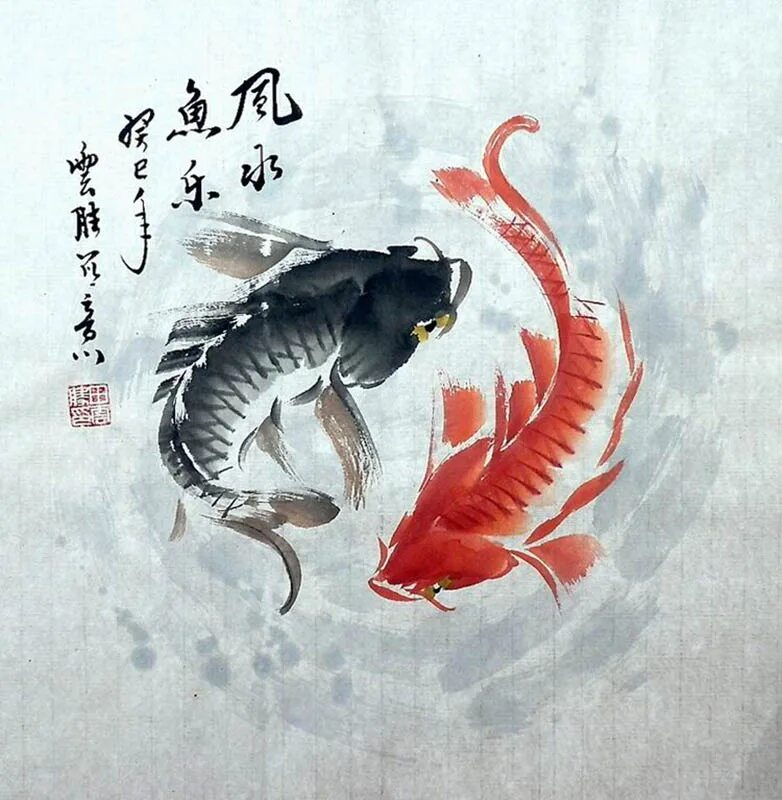 風水
魚乐
癸巳年
雲胜写意